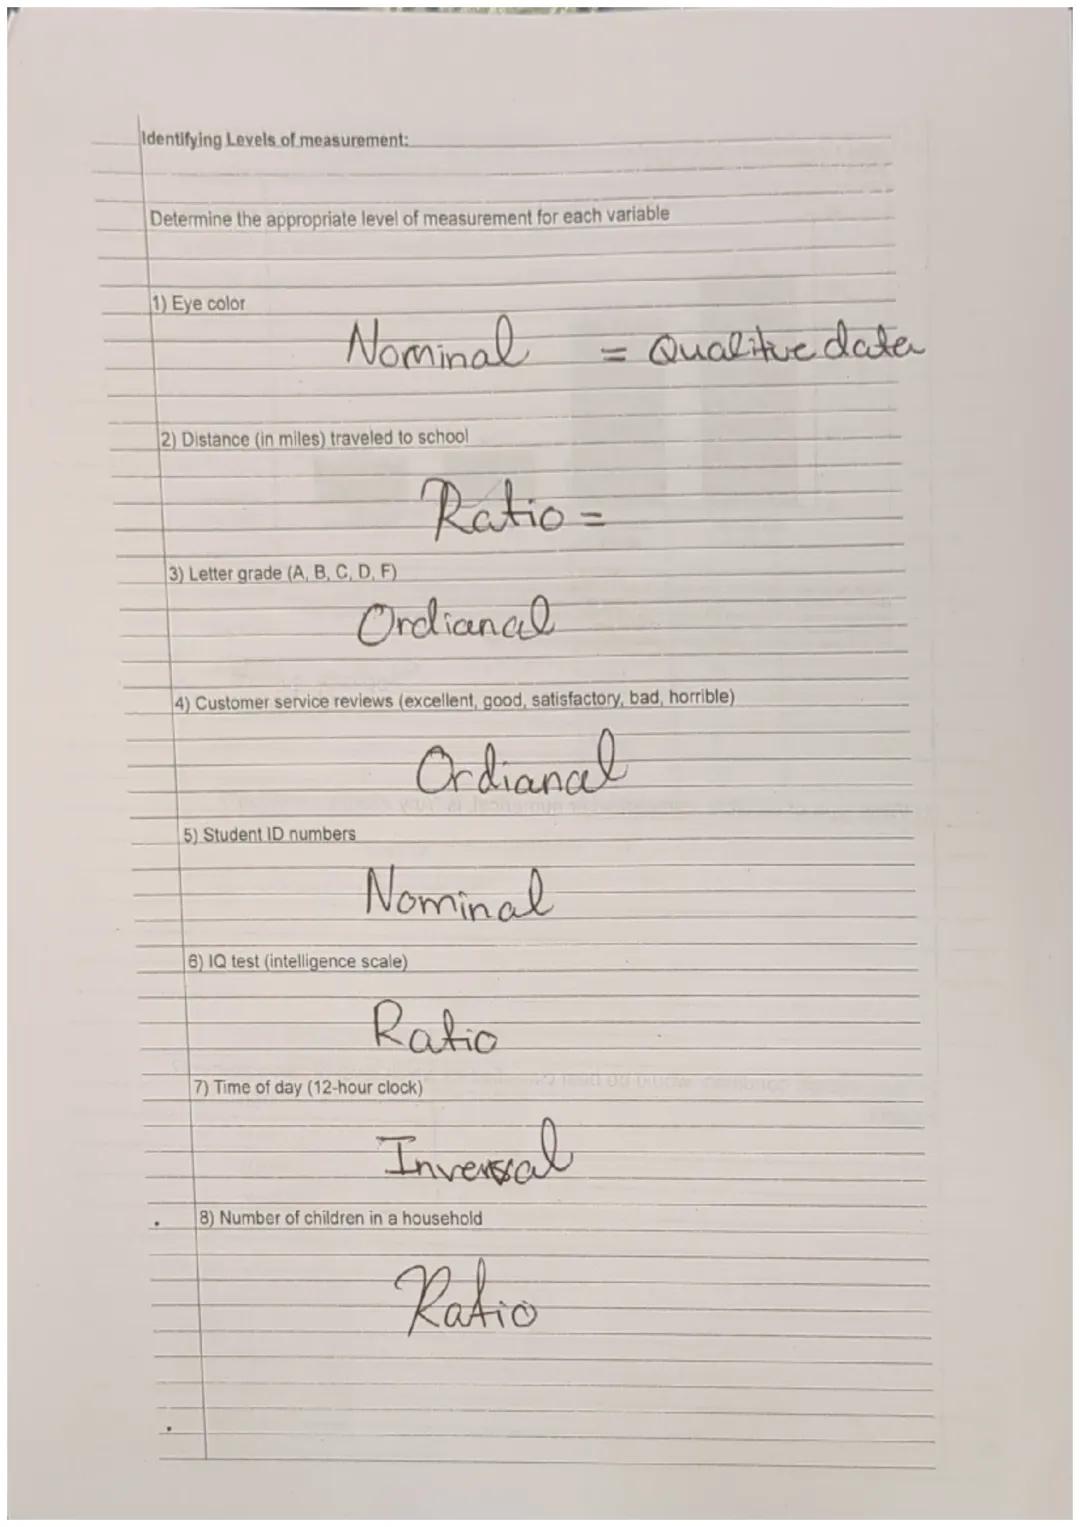 Identifying Levels of measurement:
Determine the appropriate level of measurement for each variable
1) Eye color
Nominal = Qualitive data
2) Distance (in miles) traveled to school
Ratio =
3) Letter grade (A, B, C, D, F)
Ordianal
4) Customer service reviews (excellent, good, satisfactory, bad, horrible)
Ordianal
5) Student ID numbers
Nominal
6) IQ test (intelligence scale)
Ratio
7) Time of day (12-hour clock)
Inversal
8) Number of children in a household
Ratio